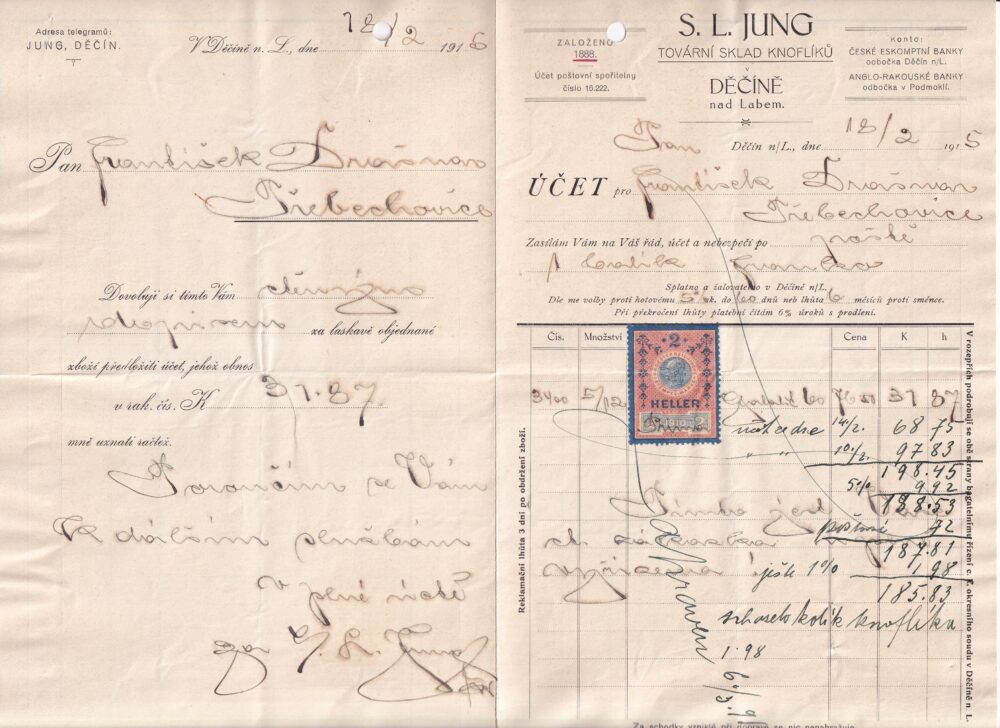 Adresa telegramů:
JUNG, DĚČÍN.
V Děčíně n. L., dne 18/2 1915
Pan František
Třebechovice
Dovoluji si tímto Vám
za laskavě objednané
zboží předložiti účet, jehož obnos
v rak. čís. K 37.87.
mně uznati račtež.
Poroučím se Vám
k dalším službám
v plné úctě
S. L. Jung
ZALOŽENO
1888.
Účet poštovní spořitelny
číslo 15.222.
S. L. JUNG
TOVÁRNÍ SKLAD KNOFLÍKŮ
v
DĚČÍNĚ
nad Labem.
Konto:
ČESKÉ ESKOMPTNÍ BANKY
odbočka Děčín n/L.
ANGLO-RAKOUSKÉ BANKY
odbočka v Podmoklí.
Pan Děčín n/L., dne 18/2 1915
ÚČET pro František
Třebechovice
Zasílám Vám na Váš řád, účet a nebezpečí po poště
1 balík franko
Splatno a žalovatelno v Děčíně n/L.
Dle me volby proti hotovému 5% sk. do 60 dnů neb lhůta 6 měsíců proti směnce.
Při překročení lhůty platební čítám 6% úroků s prodlení.
Čís. Množství Cena K h
2
HELLER
1910
3400 5/12 60 37 87
14/2. 68 75
" " 10/2. 97 83
198.45
5% 9.92
188.53
poštovné 72
187.81
ješte 1% 1.98
185.83
schaselo kolik knoflíka
1.98
Zapraven
Reklamační lhůta 3 dni po obdržení zboží.
V rozepřích podrobují se obě strany bagatelnímu řízení c. k. okresního soudu v Děčíně n. L.
Za schodky vzniklé při dopravě se nic nenahražuje.